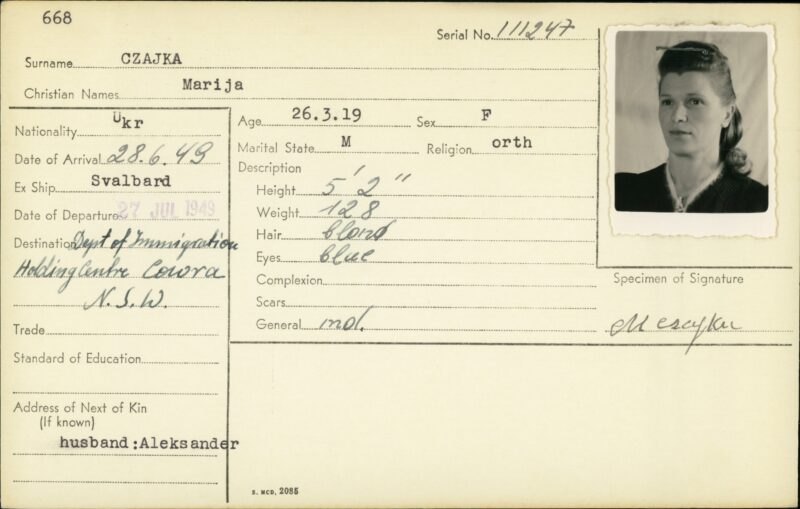 668
Serial No. 111247
Surname CZAJKA
Christian Names Marija
Nationality Ukr
Date of Arrival 28.6.49
Ex Ship Svalbard
Date of Departure 27 JUL 1949
Destination Dept of Immigration
Holding Centre Cowra
N.S.W.
Trade
Standard of Education
Address of Next of Kin
(If known)
husband:Aleksander
Age 26.3.19 Sex F
Marital State M Religion orth
Description
Height 5' 2"
Weight 128
Hair blond
Eyes blue
Complexion
Scars
General md.
Specimen of Signature
M Czajka
S. MCD. 2085